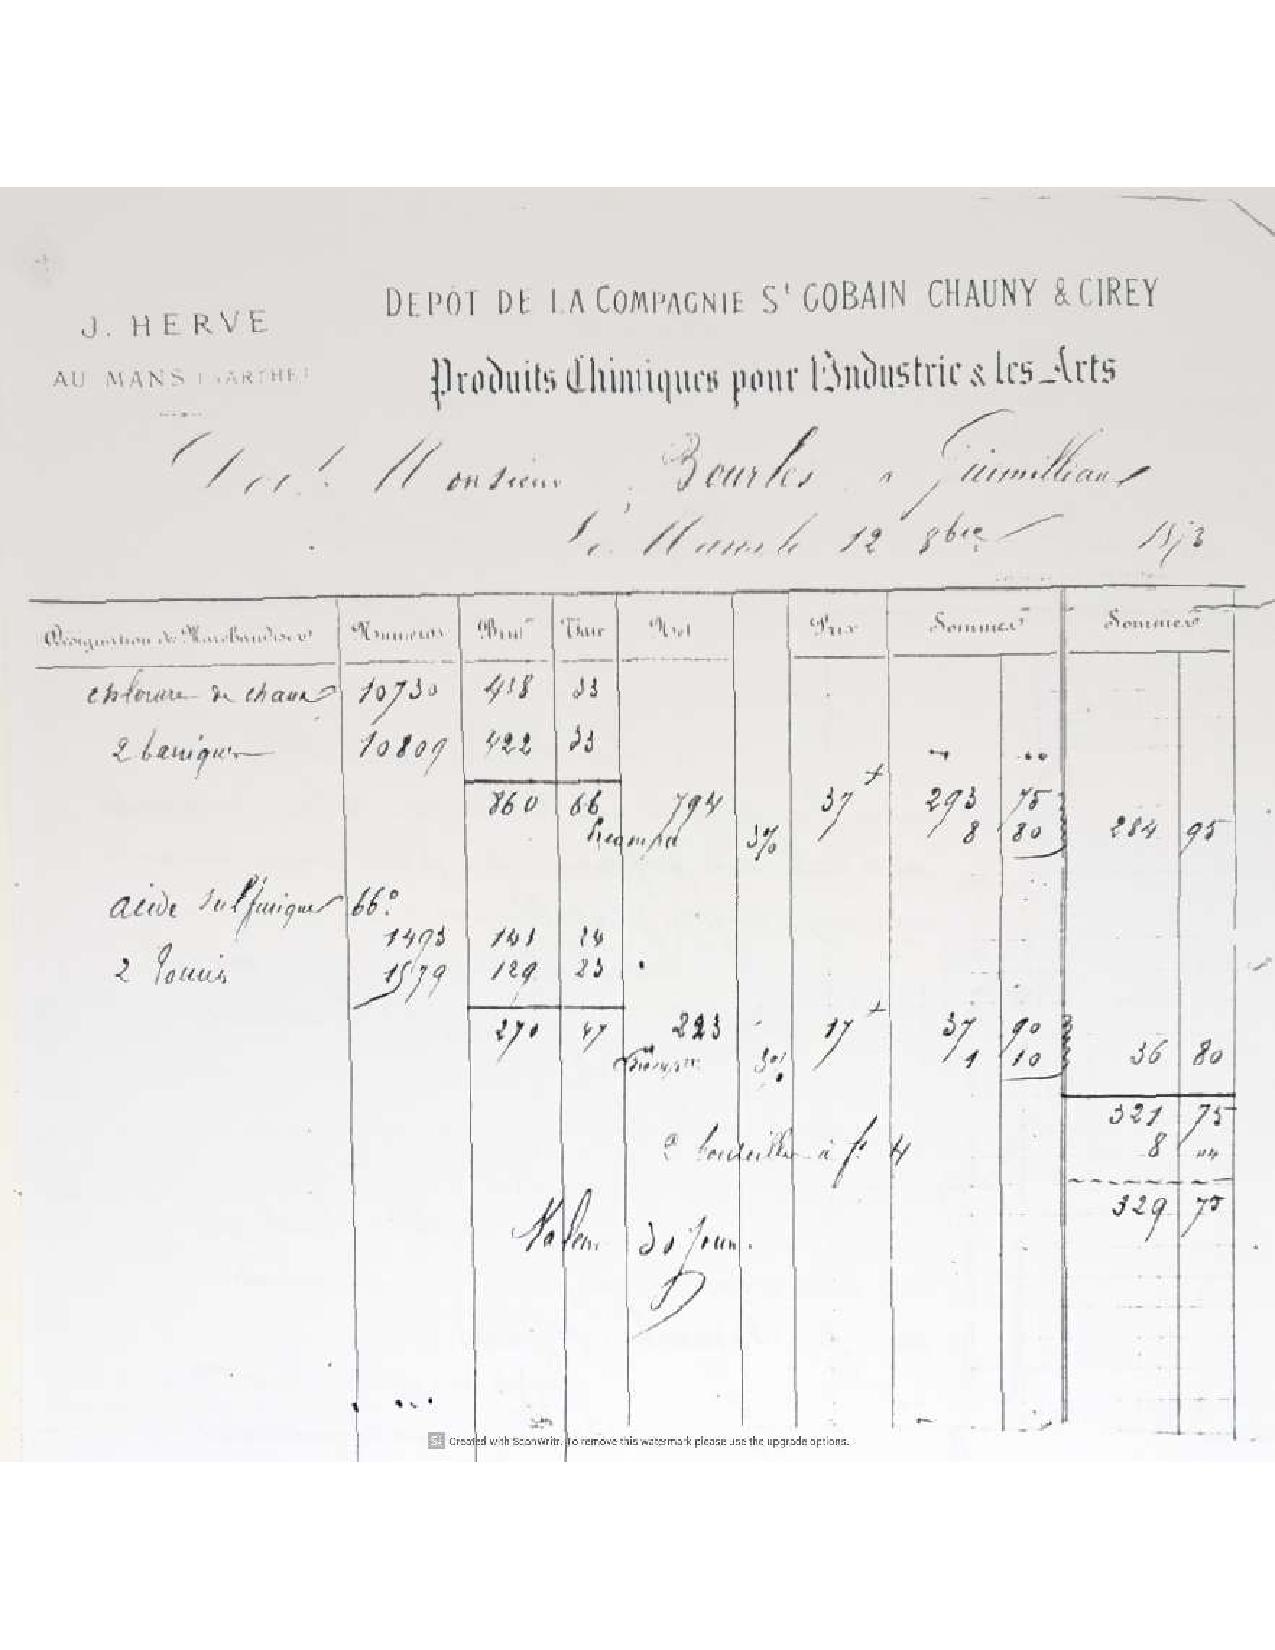 DEPÔT DE LA COMPAGNIE St GOBAIN CHAUNY & CIREY
J. HERVE
AU MANS (SARTHE)
Produits Chimiques pour l'Industrie & les Arts
Doit Monsieur Bourles à Guimilliau
Le Mans le 12 8bre 1873
Désignation de Marchandises Numéros Brut Tare Net Prix Sommes Sommes
chlorure de chaux 10730 438 33
2 barriques 10809 422 33
860 66 794 37 293 75
Escompte 3% 8 80 284 95
acide sulfurique 66°
1493 141 24
2 Touris 1579 129 23
270 47 223 17 37 90
Escompte 3% 1 10 36 80
321 75
2 bouteilles à f. 4 8 "
329 75
Valeur 30 jours.
Created with ScanWritr. To remove this watermark please use the upgrade options.